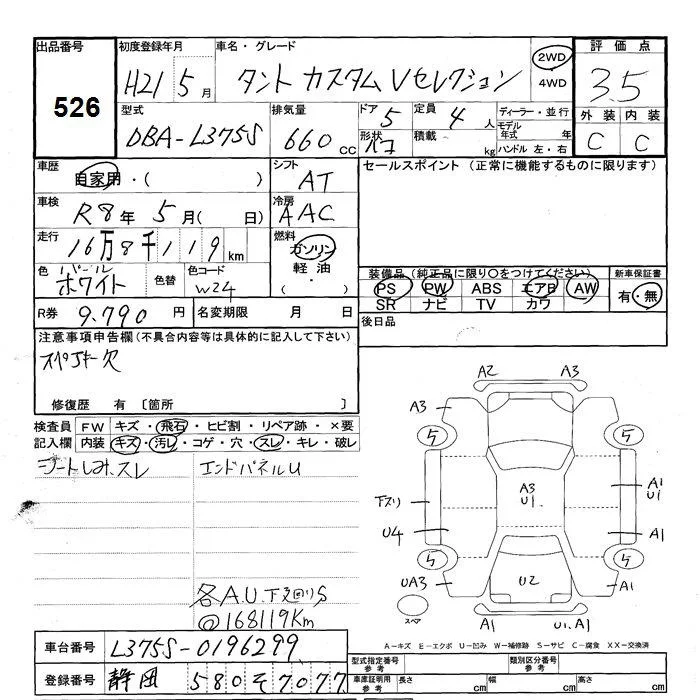 出品番号 初度登録年月 車名・グレード 2WD 評価点
526 H21 5月 タント カスタム Vセレクション 4WD 3.5
型式 排気量 ドア 5 定員 4人 ディーラー・並行 外装 内装
DBA-L375S 660cc 形状 積載 kg モデル年式 年 C C
ハンドル 左・右
車歴 自家用・( ) シフト AT セールスポイント (正常に機能するものに限ります)
車検 R8年 5月( 日) 冷房 AAC
走行 16万8千119km 燃料 ガソリン
軽油
・( )
色 パール ホワイト 色替 色コード W24
装備品(純正品に限り○をつけてください) 新車保証書
PS PW ABS エアB AW 有・無
SR ナビ TV カワ
R券 9.790円 名変期限 月 日 後日品
注意事項申告欄(不具合内容等は具体的に記入して下さい)
スペアキー欠
修復歴 有 〔箇所 〕
検査員 FW キズ・飛石・ヒビ割・リペア跡・×要
記入欄 内装 キズ・汚レ・コゲ・穴・スレ・キレ・破レ
シートしみ、スレ エンドパネルU
各A.U.下廻りS
@168119Km
A2 A3
A3
5 5
下スリ A3 U1 A1 U1
U4 A1
5 5
UA3 U2 A1
スペア A1 U1.A1
A-キズ E-エクボ U-凹み W-補修跡 S-サビ C-腐食 XX-交換済
車台番号 L375S-0196299
登録番号 静岡 580そ7077
型式指定番号 参考 類別区分番号 参考
車庫証明用 参考 長さ cm 幅 cm 高さ cm